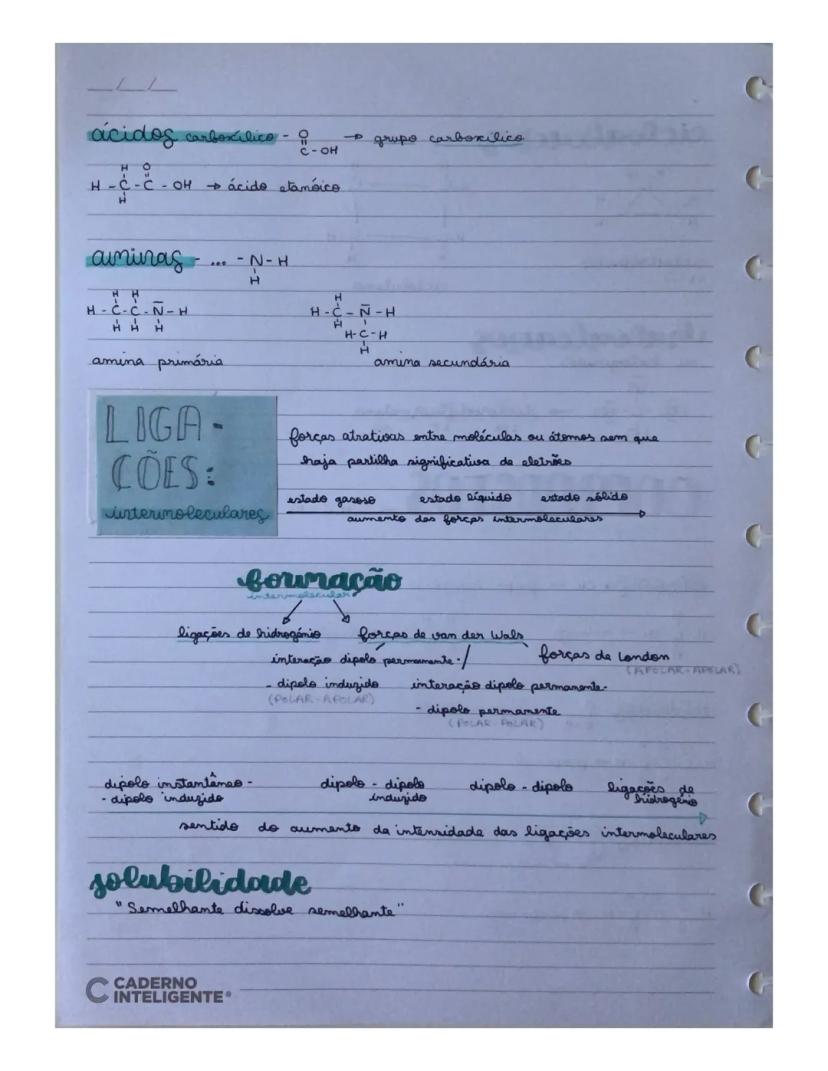 __/__/__
ácidos carboxílico - O → grupo carboxílico
=
C - OH
H O
H - C - C - OH → ácido etanóico
H
aminas - ... - N - H
H
H H
H - C - C - N - H
H H H
H
H - C - N - H
H
H - C - H
H
amina primária amina secundária
LIGA -
ÇÕES:
intermoleculares
forças atrativas entre moléculas ou átomos sem que
haja partilha significativa de eletrões
estado gasoso estado líquido estado sólido
aumento das forças intermoleculares
formação
intermolecular
ligações de hidrogénio forças de van der Wals
interação dipolo permanente - forças de London
(APOLAR - APOLAR)
- dipolo induzido interação dipolo permanente -
(POLAR - APOLAR) - dipolo permanente
(POLAR - POLAR)
dipolo instantâneo - dipolo - dipolo dipolo - dipolo ligações de
- dipolo induzido induzido hidrogénio
sentido do aumento da intensidade das ligações intermoleculares
solubilidade
"Semelhante dissolve semelhante"
CADERNO
INTELIGENTE®